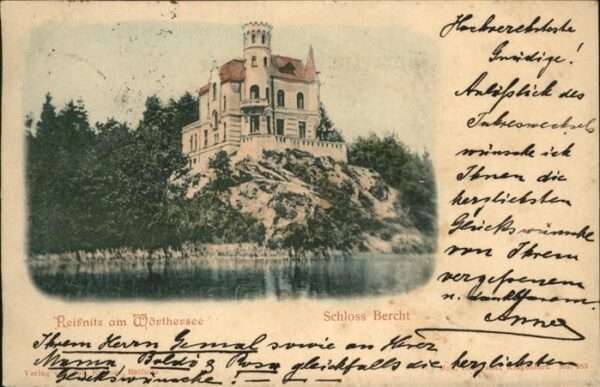 Hochverehrteste
Gnädige!
Anläßlich des
Jahreswechsels
wünsche ich
Ihnen die
herzlichsten
Glückswünsche
von Ihrem
Reifnitz am Wörthersee
Schloss Bercht
Anna
Ihrem Herrn Gemal sowie an Herz
Mama, Boldi & Rosa gleichfalls die herzlichsten
Glückswünsche!
Verlag